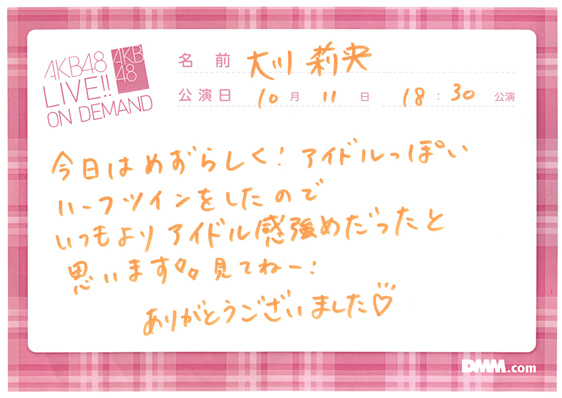 AKB48
LIVE!!
ON DEMAND
AKB
48
名前 大川 莉央
公演日 10月 11日 18:30 公演
今日はめずらしく!アイドルっぽい
ハーフツインをしたので
いつもよりアイドル感強めだったと
思います。見てねー!
ありがとうございました♡
DMM.com